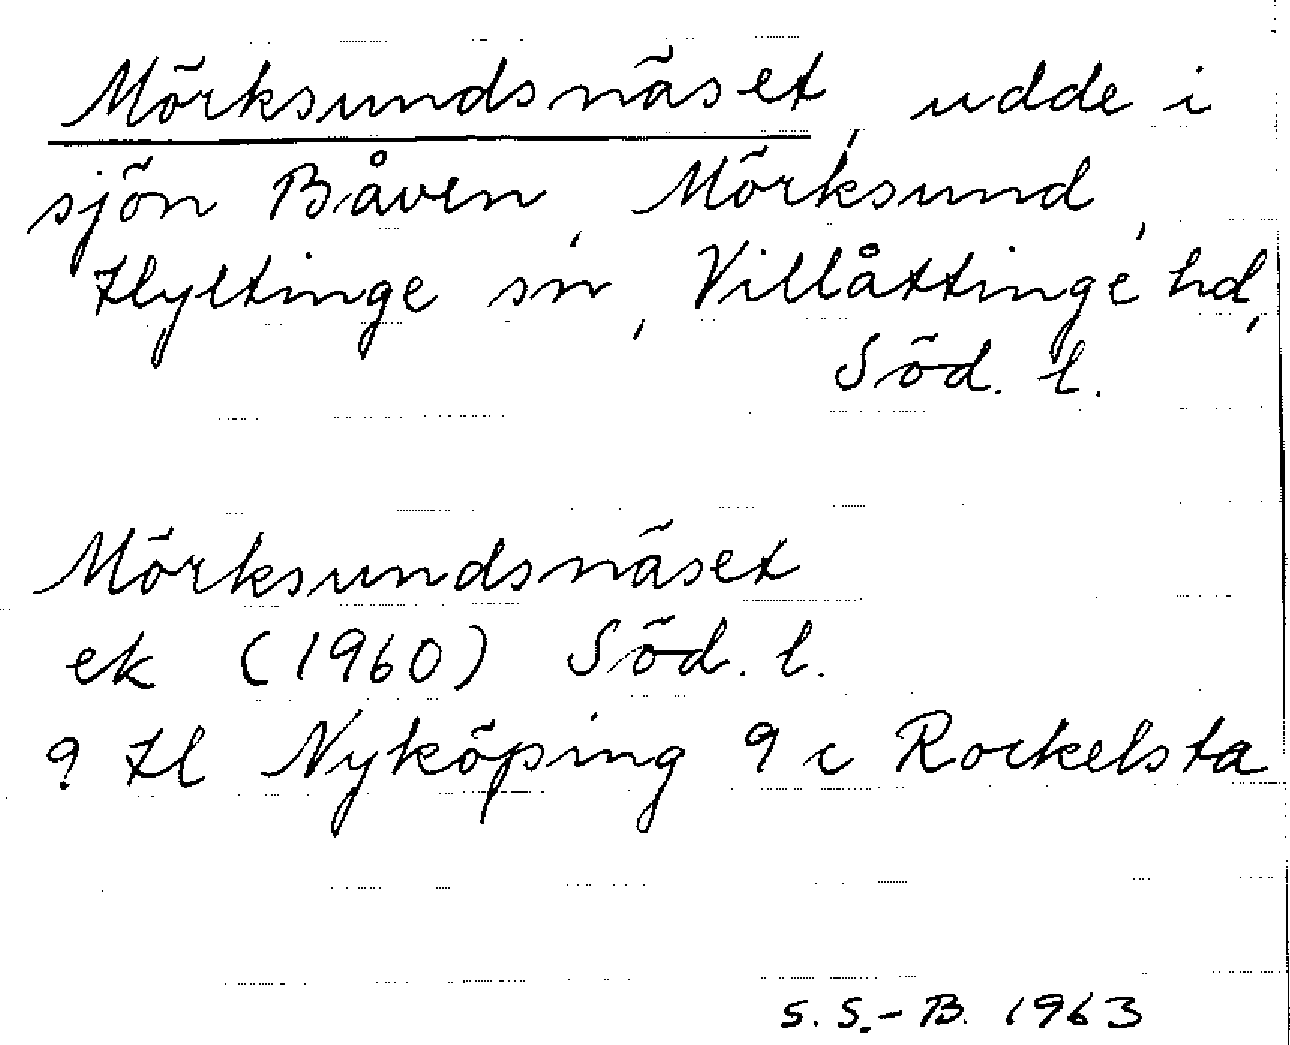 Mörksundsnäset, udde i
sjön Båven, Mörksund,
Hyltinge sn, Villåttinge hd,
Söd. l.
Mörksundsnäset
ek (1960) Söd. l.
9 H Nyköping 9 c Rockelsta
S. S.-B. 1963